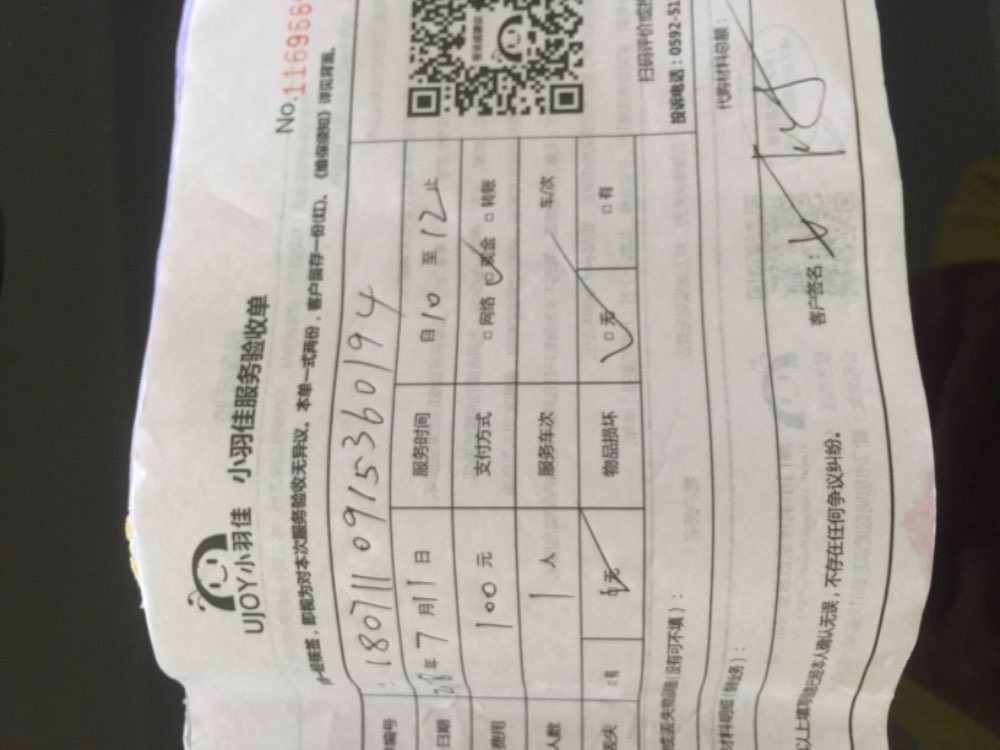 No.1169669
UJOY小羽佳 小羽佳服务验收单
经核签，即视为对本次服务验收无异议。本单一式两份，客户留存一份(红)。《维保须知》详见背面。
编号 1807110915360194
日期 18年7月11日 服务时间 自10至12止
费用 100元 支付方式 □网络 □现金 □转账
人数 1人 服务车次 车/次
丢失 □有 □无 物品损坏 □无 □有
扫码评价或
投诉电话：0592-51
或丢失物品明细(没有可不填)：
材料明细 代购材料总额：
以上填写确已经本人确认无误，不存在任何争议纠纷。 客户签名：